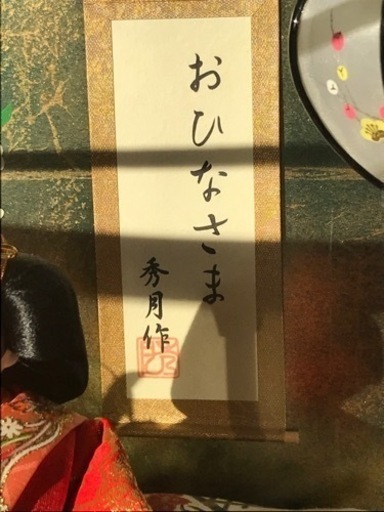 おひなさま
秀月作